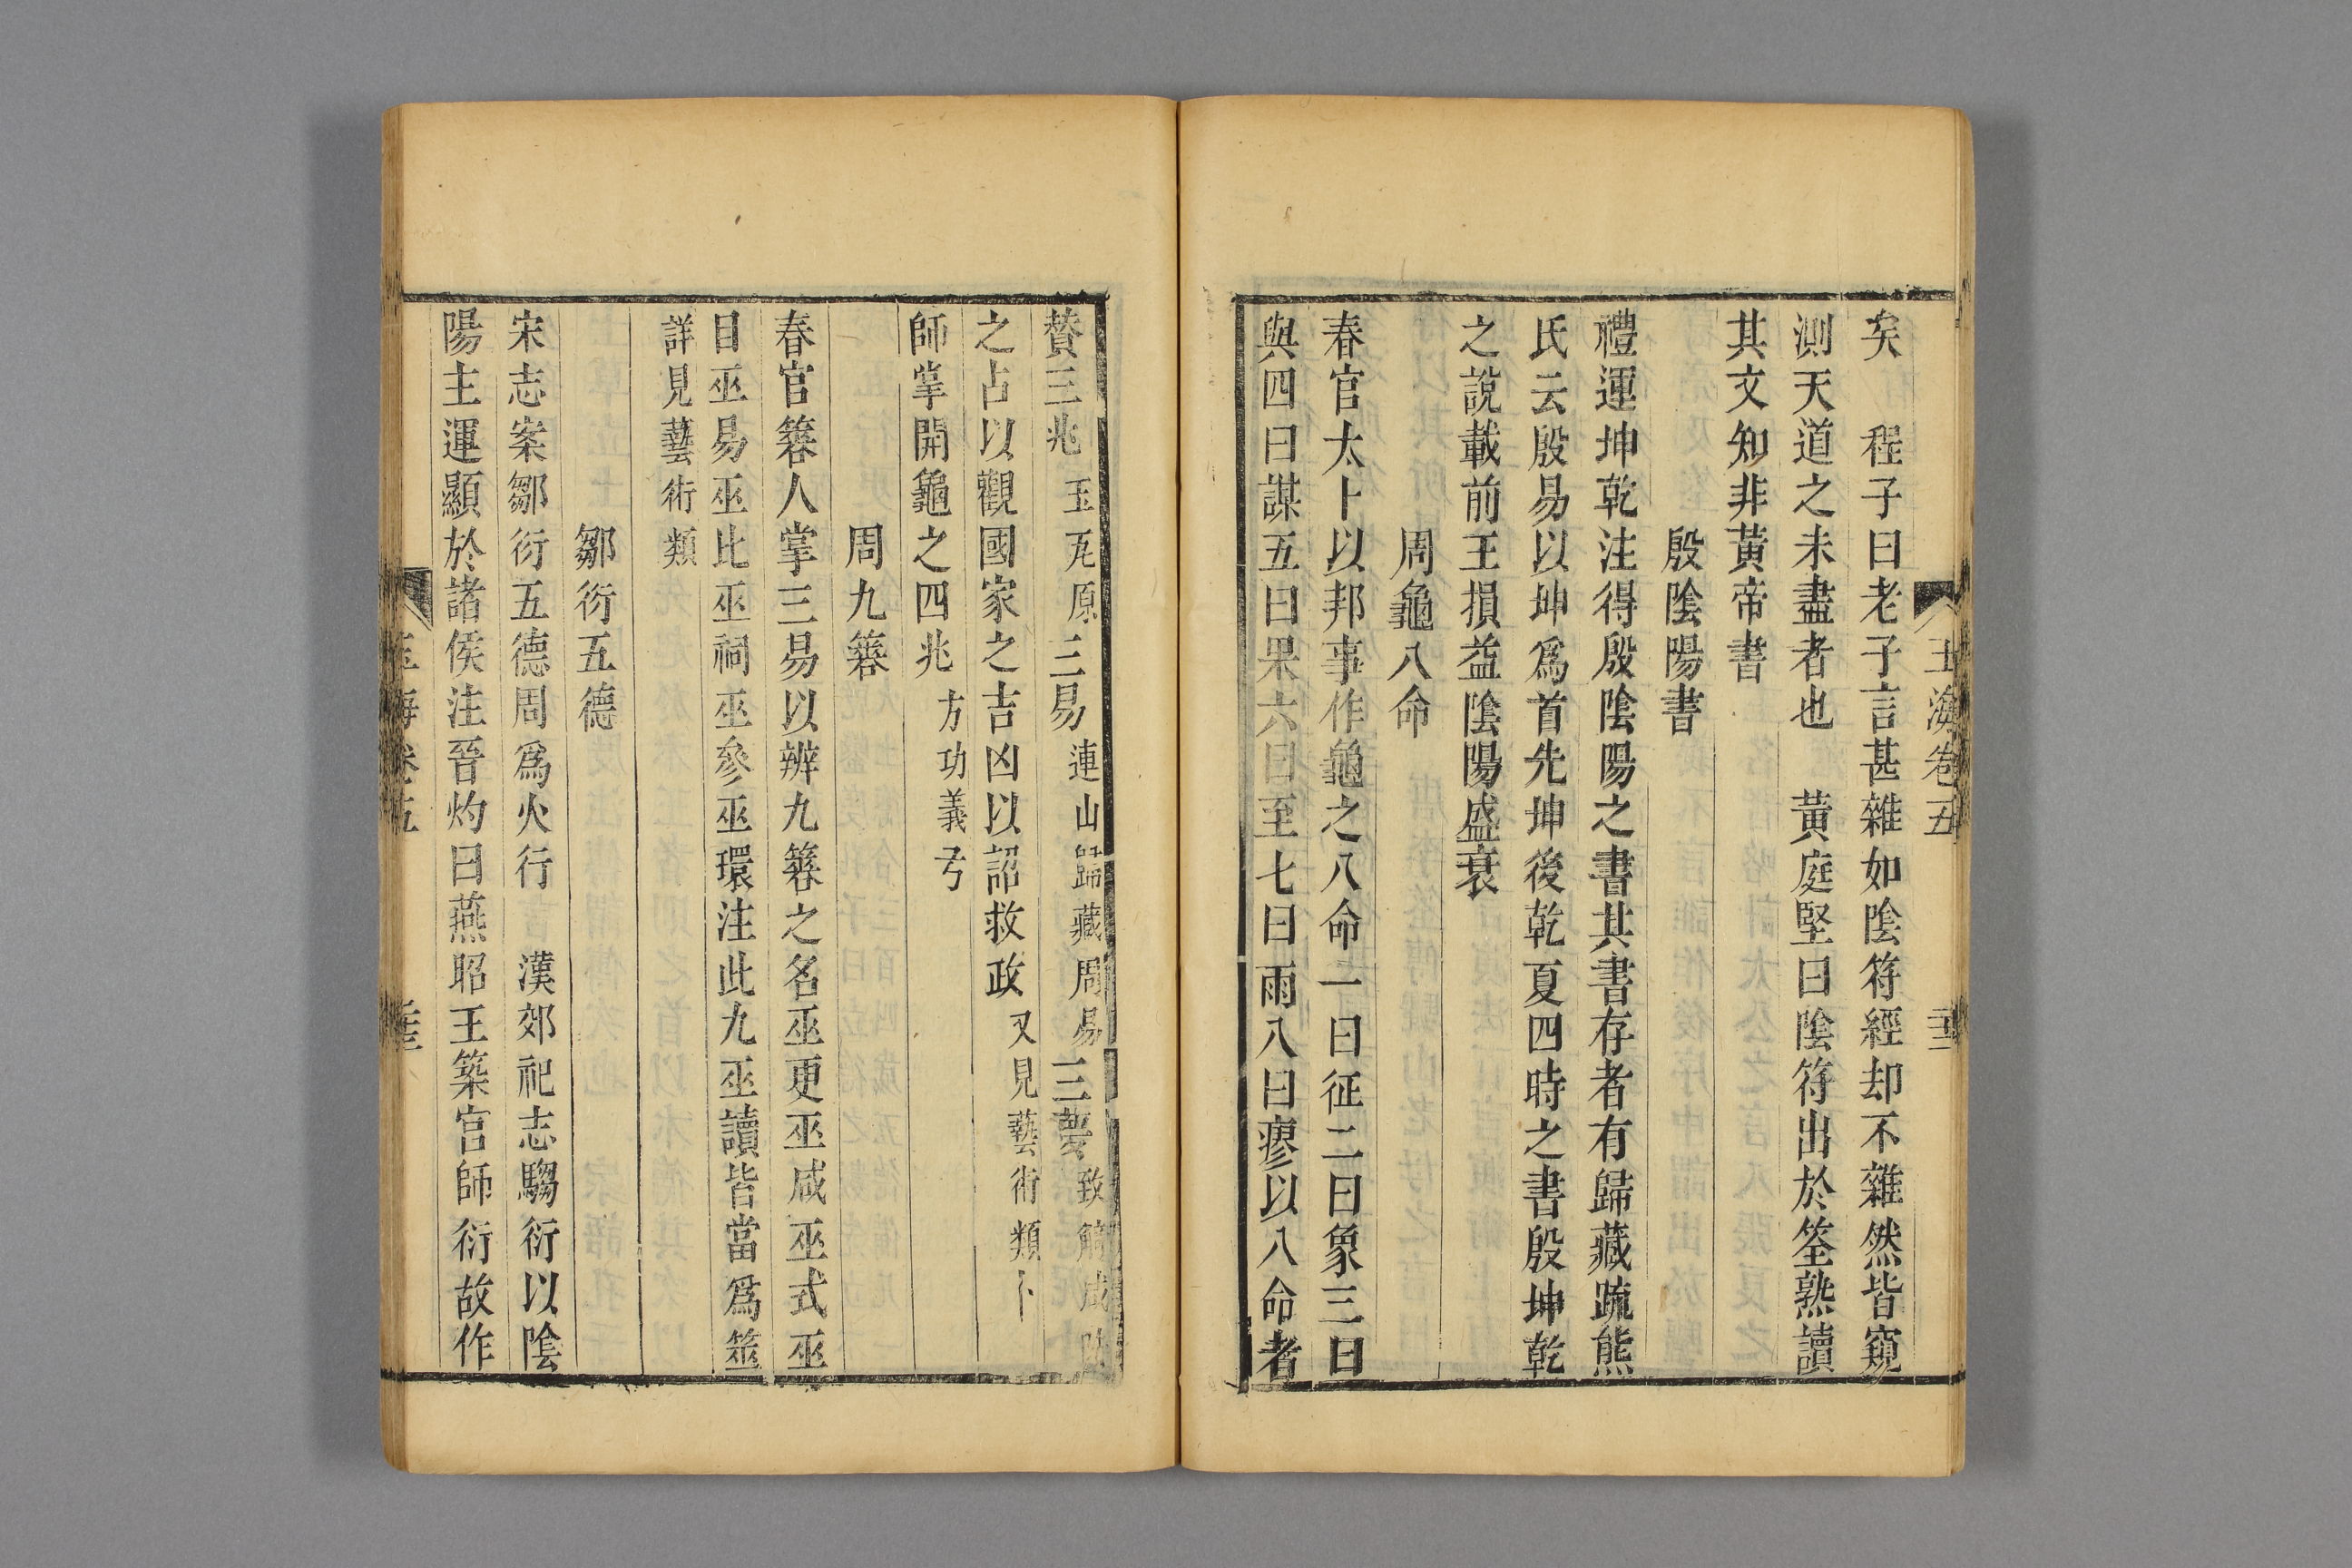 玉海卷五
矣　程子曰老子言甚雜如陰符經却不雜然皆窺
測天道之未盡者也　黃庭堅曰陰符出於筌熟讀
其文知非黃帝書
殷陰陽書
禮運坤乾注得殷陰陽之書其書存者有歸藏疏熊
氏云殷易以坤爲首先坤後乾夏四時之書殷坤乾
之說載前王損益陰陽盛衰
周龜八命
春官太卜以邦事作龜之八命一曰征二曰象三曰
與四曰謀五曰果六曰至七曰雨八曰瘳以八命者
贊三兆玉瓦原三易連山歸藏周易三夢致觭咸陟
之占以觀國家之吉凶以詔救政又見藝術類卜
師掌開龜之四兆方功義弓
周九簭
春官簭人掌三易以辨九簭之名巫更巫咸巫式巫
目巫易巫比巫祠巫參巫環注此九巫讀皆當爲筮
詳見藝術類
鄒衍五德
宋志案鄒衍五德周爲火行　漢郊祀志騶衍以陰
陽主運顯於諸侯注晉灼曰燕昭王築宮師衍故作
玉海卷五